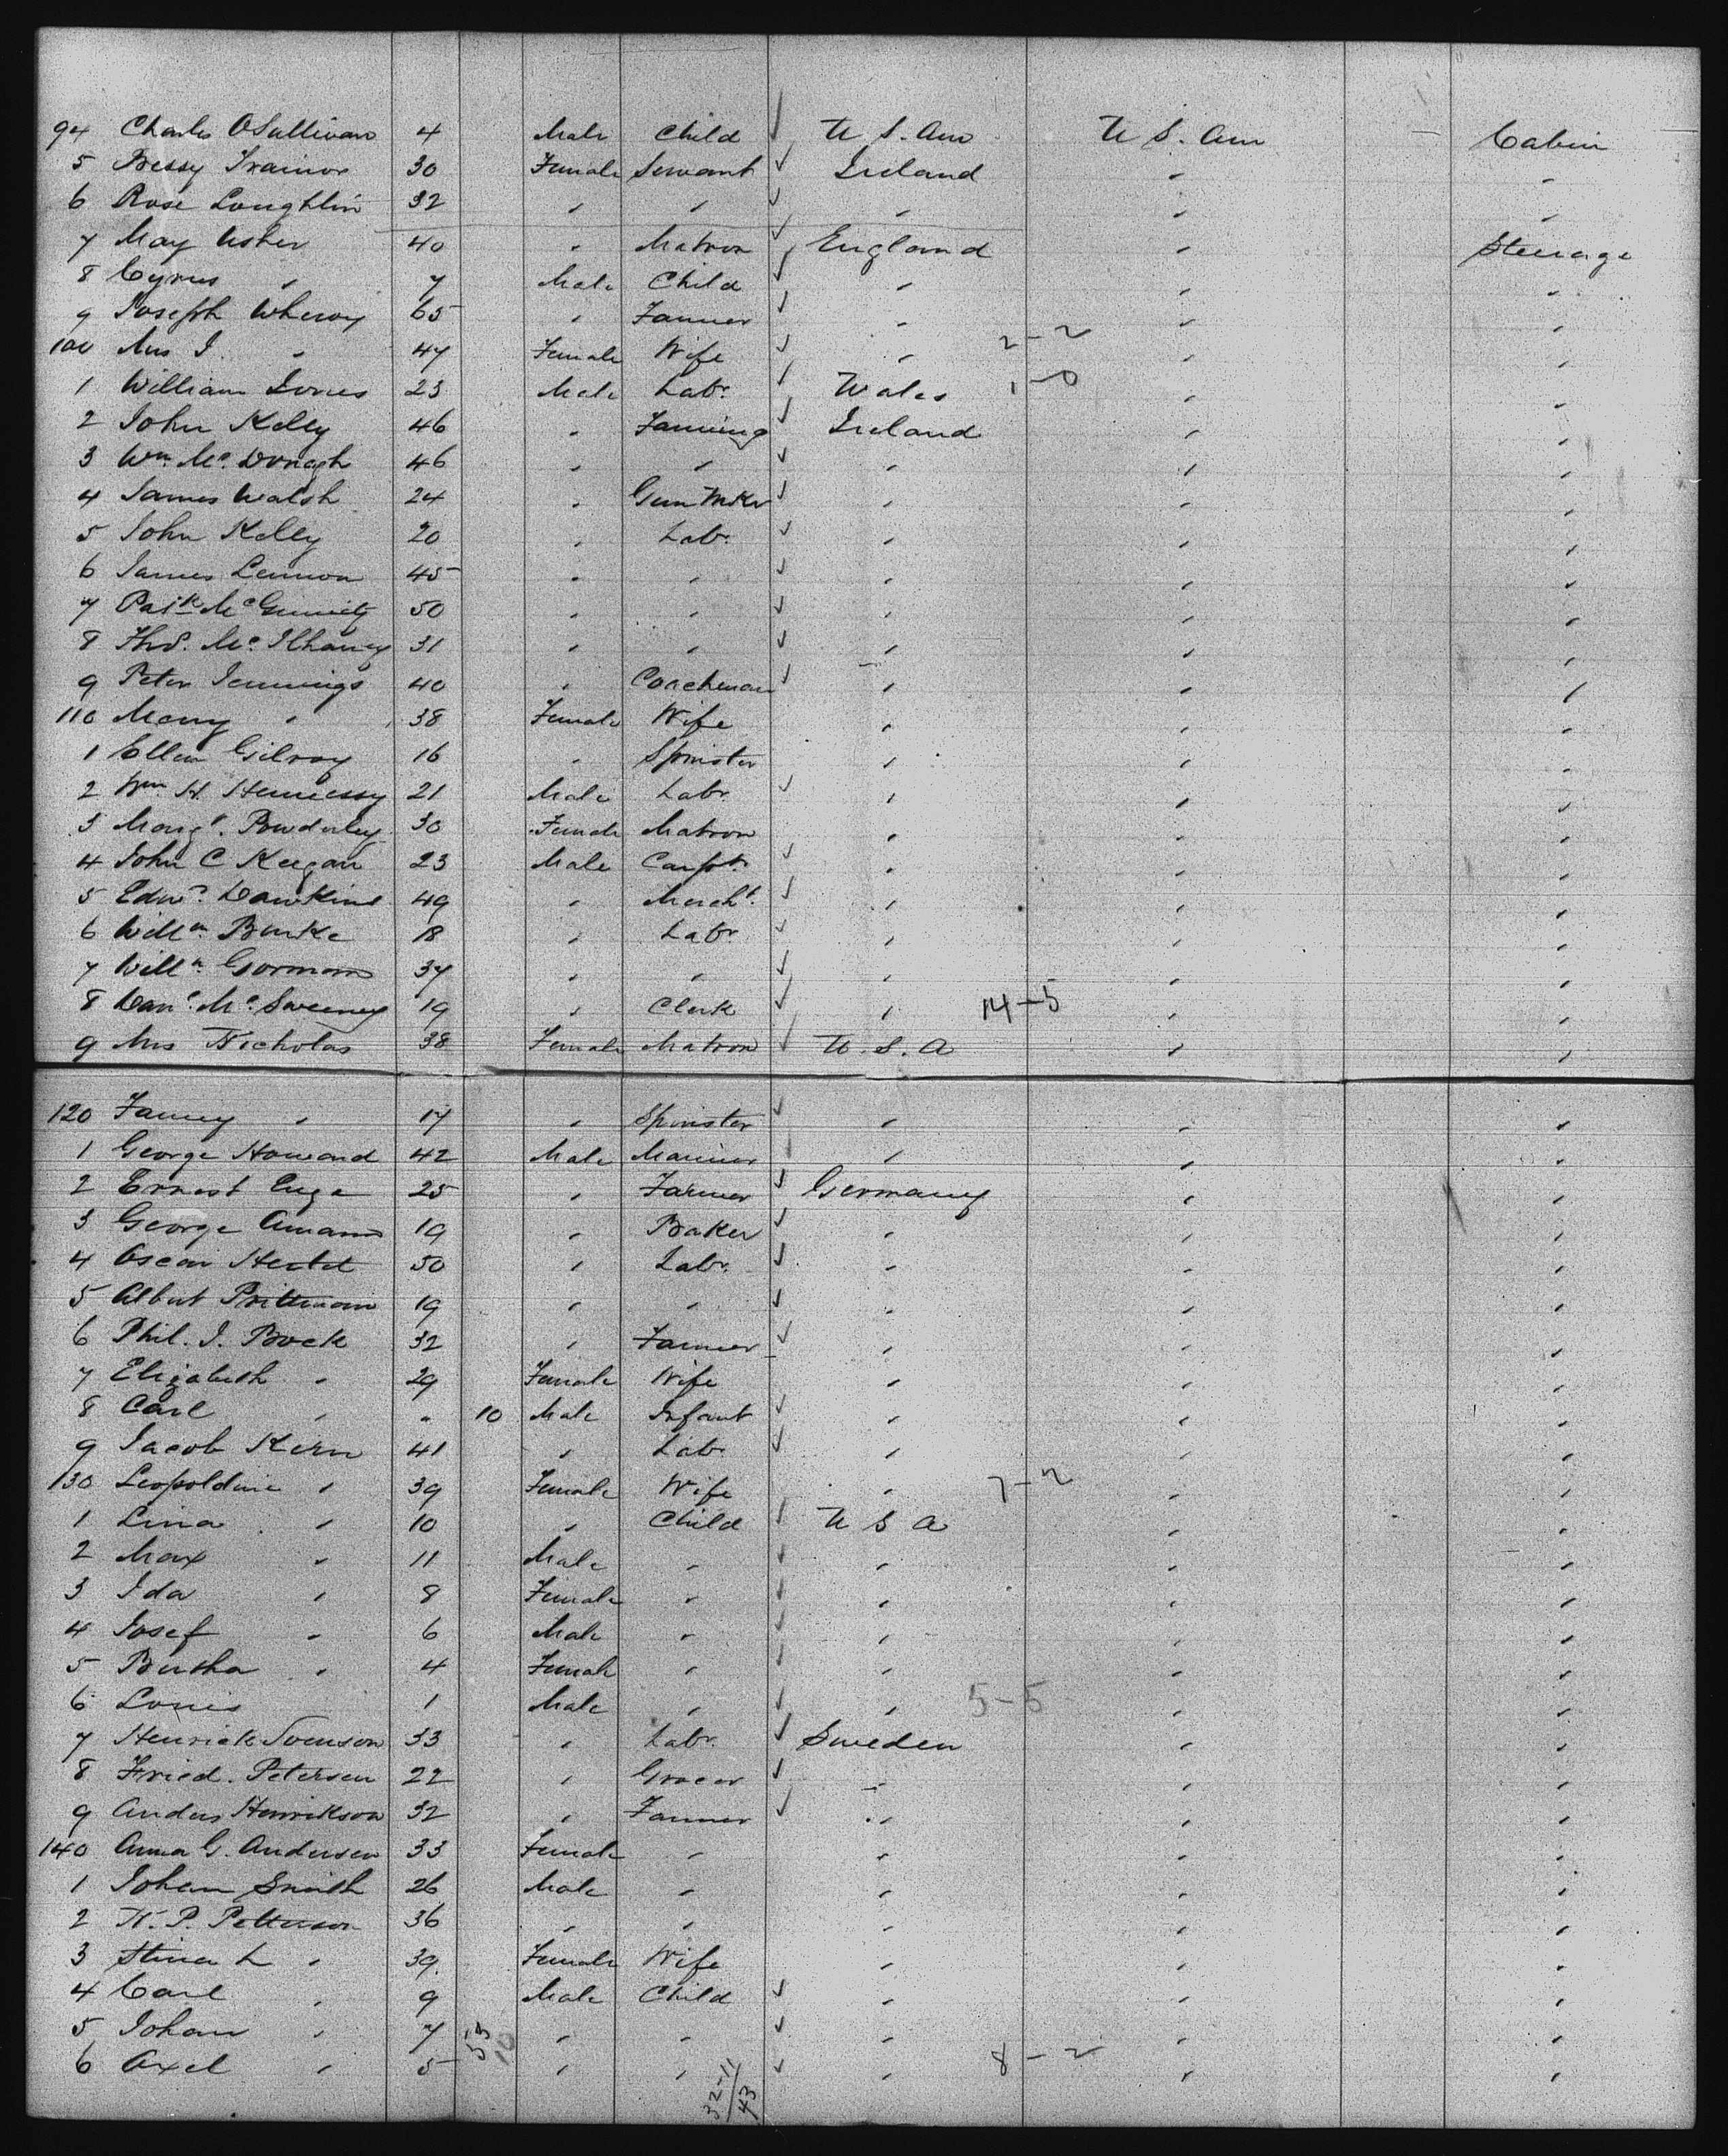 94 Charles OSullivan 4 Male Child ✓ U S. Am U S. Am Cabin
5 Bessy Trainor 30 Female Servant ✓ Ireland " "
6 Rose Loughlin 32 " " ✓ " " "
7 May Usher 40 " Matron ✓ England " Steerage
8 Cyrus " 7 Male Child ✓ " " "
9 Joseph Wherry 65 " Farmer ✓ " " "
100 Mrs J. " 47 Female Wife ✓ " 2-2 " "
1 William Jones 23 Male Labr. ✓ Wales 1-0 " "
2 John Kelly 46 " Farming ✓ Ireland " "
3 Wm. Mc. Donagh 46 " " ✓ " " "
4 James Walsh 24 " Gun Mkr ✓ " " "
5 John Kelly 20 " Labr. ✓ " " "
6 James Lennon 45 " " ✓ " " "
7 Patk Mc 50 " " ✓ " " "
8 Thos. Mc. Ilhaney 31 " " ✓ " " "
9 Peter Jennings 40 " Coachman ✓ " " "
110 Mary " 38 Female Wife " " "
1 Ellen Gilroy 16 " Spinster " " "
2 Wm. H. Hennessy 21 Male Labr. ✓ " " "
3 Margt. Powderley 30 Female Matron " " "
4 John C Keegan 23 Male Carptr. ✓ " " "
5 Edwd. Dawkins 49 " Mercht. ✓ " " "
6 Willm. Burke 18 " Labr. ✓ " " "
7 Willm. Gorman 37 " " ✓ " " "
8 Danl. Mc. Sweeney 19 " Clerk ✓ " 14-5 " "
9 Mrs Nicholas 38 Female Matron ✓ U. S. A " "
120 Fanny " 17 " Spinster ✓ " " "
1 George Howard 42 Male Mariner ✓ " " "
2 Ernest Enge 25 " Farmer ✓ Germany " "
3 George Amann 19 " Baker ✓ " " "
4 Oscar 50 " Labr. ✓ " " "
5 Albert Prittmann 19 " " ✓ " " "
6 Phil. J. Bock 32 " Farmer ✓ " " "
7 Elizabeth " 29 Female Wife " " "
8 Carl " " 10 Male Infant ✓ " " "
9 Jacob Kern 41 " Labr. ✓ " " "
130 Leopoldine " 39 Female Wife " 7-2 " "
1 Lina " 10 " Child ✓ U S A " "
2 Max " 11 Male " ✓ " " "
3 Ida " 8 Female " ✓ " " "
4 Josef " 6 Male " ✓ " " "
5 Bertha " 4 Female " ✓ " " "
6 Louis 1 Male " ✓ " 5-5 " "
7 Henrick Svenson 33 " Labr. ✓ Sweden " "
8 Fried. Petersen 22 " Grocer ✓ " " "
9 Anders Henrikson 32 " Farmer ✓ " " "
140 Anna G. Andersen 33 Female " " " "
1 Johan Smith 26 Male " " " "
2 N. P. Petterson 36 " " " " "
3 Stina L " 39 Female Wife " " "
4 Carl " 9 Male Child ✓ " " "
5 Johan " 7 53 10 " " ✓ " " "
6 Axel " 5 " " ✓ " 8-2 " "
32-11/43